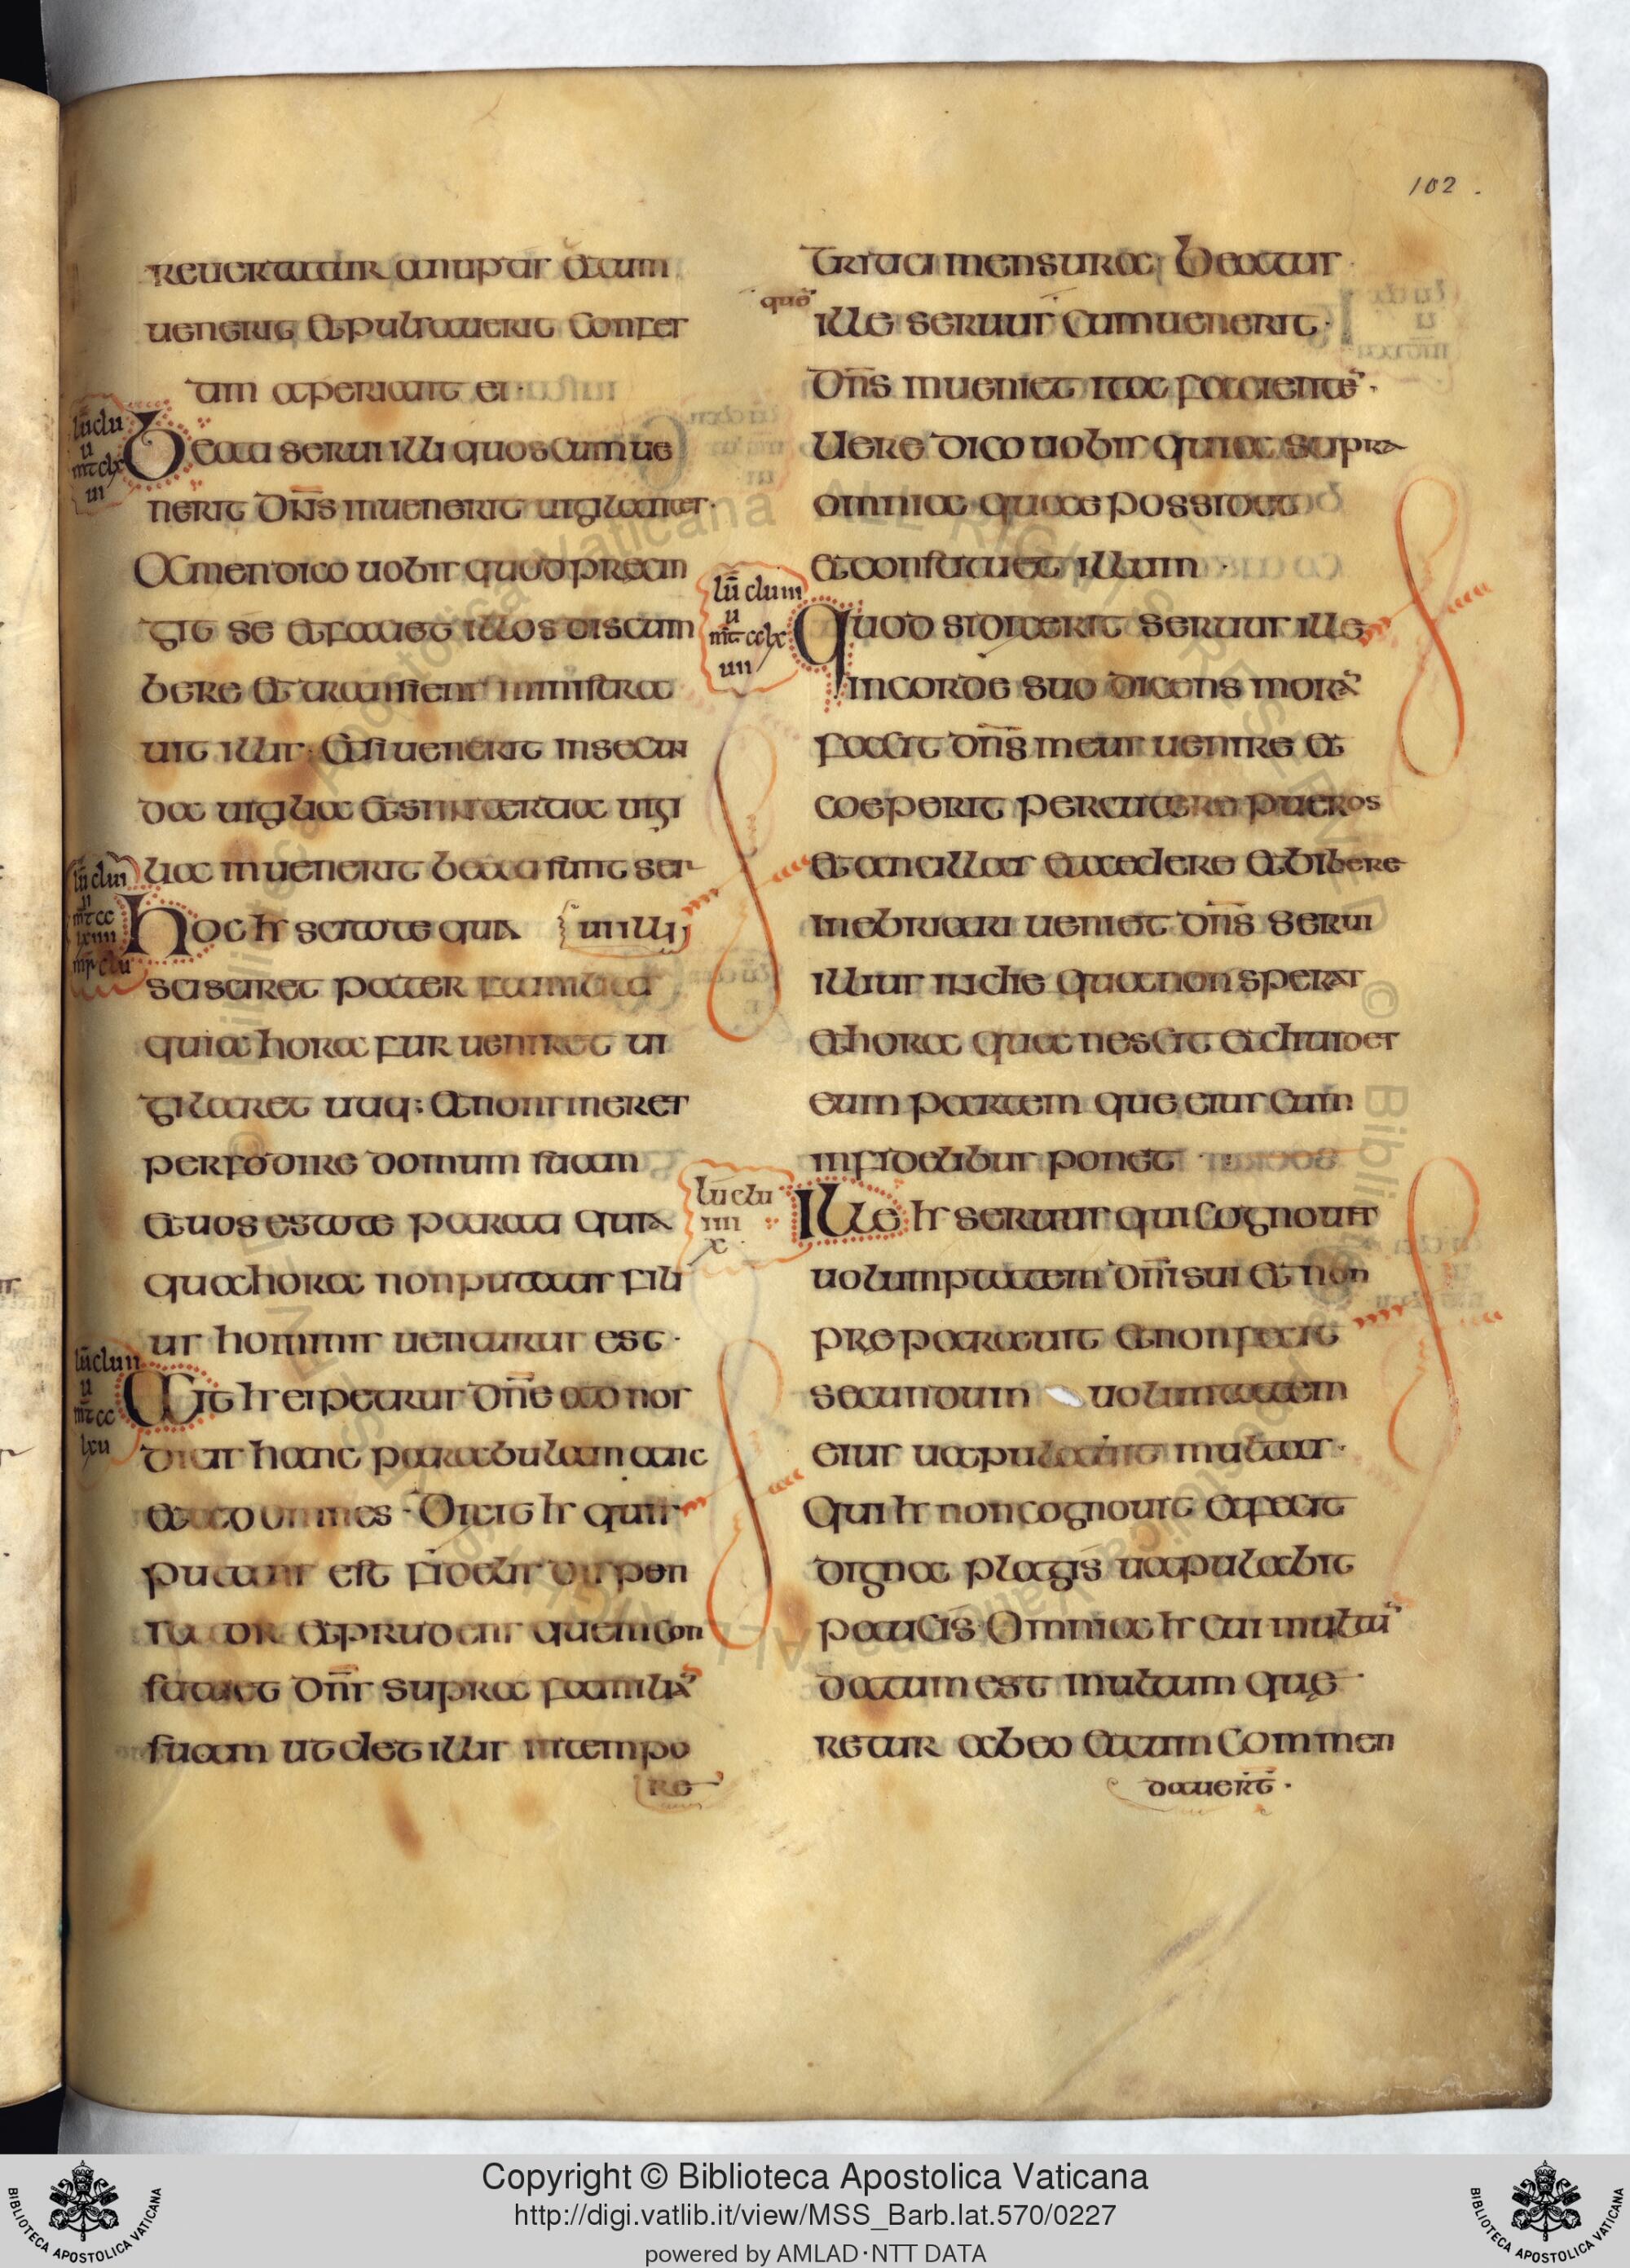 102.
reuertatur anuptis et cum
uenerit et pulsauerit confes
tim aperiant ei
lū clu
u
mt clx
iii
Beati serui illi quos cum ue
nerit dn̄s inuenerit uigilantes·
Amen dico uobis quod precin
git se et faciet illos discum
bere et transiens ministra
uit illis· Et si uenerit in secun
da uigilia et si in tertia uigi
lia inuenerit beati sunt ser
ui illi
lū clui
u
mt cc
lxiiii
mr clu
hoc ħ scitote quia
si sciret pater familias
quia hora fur ueniret ui
gilaret utiq; et non sineret
perfodire domum suam
et uos estote parati quia
qua hora non putatis fili
us hominis uenturus est·
lū cluii
u
mt cc
lxu
Ait ħ ei petrus dn̄e ad nos
dicis hanc parabulam anc
et ad omnes· Dicit ħ quis
putans est fidelis dispen
sator et prudens quem con
stituet dn̄s supra familiā
suam ut det illis in tempo
re
tritici mensura Beatus
ille seruus quē cum uenerit·
dn̄s inueniet ita facientē·
Uere dico uobis quia supra
omnia quae possidet
et constituet illum
lū cluiii
u
mt cclx
uii
Quod si dixerit seruus ille
in corde suo dicens morā
facit dn̄s meus uenire et
coeperit percutere pueros
et ancillas et edere et bibere
inebriari ueniet dn̄s serui
illius in die qua non sperat
et hora qua nescit et diuidet
eum partem que eius cum
infidelibus ponet
lū clu
iiii
x
Ille ħ seruus qui cognouit
uolumptatem dn̄i sui et non
preparauit et non facit
secundum uoluntatem
eius uapulabit multas·
Qui ħ non cognouit et facit
digna plagis uapulabit
paucis· Omnia ħ cui multū
datum est multum que
retur ab eo et cum commen
dauert̄·
Copyright © Biblioteca Apostolica Vaticana
http://digi.vatlib.it/view/MSS_Barb.lat.570/0227
powered by AMLAD·NTT DATA
BIBLIOTECA APOSTOLICA VATICANA
BIBLIOTECA APOSTOLICA VATICANA